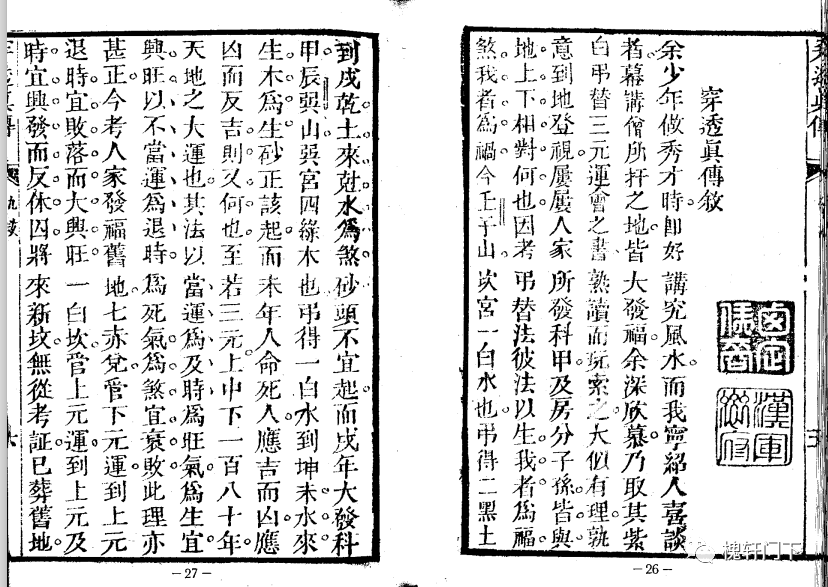 穿透眞傳敘
余少年做秀才時即好講究風水而我寧紹人喜談
者幕講僧所扞之地皆大發福余深欣慕乃取其紫
白弔替三元運會之書熟讀而玩索之大似有理孰
意到地登視屢屢人家所發科甲及房分子孫皆與
地上下相對何也因考弔替法彼法以生我者爲福
煞我者爲禍今壬子山坎宮一白水也弔得二黑土
漢軍
－26－
到戌乾土來尅水爲煞砂頭不宜起而戌年大發科
甲辰巽山巽宮四綠木也弔得一白水到坤未水來
生木爲生砂正該起而未年人命死人應吉而凶應
凶而反吉則又何也至若三元上中下一百八十年
天地之大運也其法以當運爲及時爲旺氣爲生宜
興旺以不當運爲退時爲死氣爲煞宜衰敗此理亦
甚正今考人家發福舊地七赤兌管下元運到上元
退時宜敗落而大興旺一白坎管上元運到上元及
時宜興發而反休囚將來新墳無從考証已葬舊地
－27－
槐轩门下